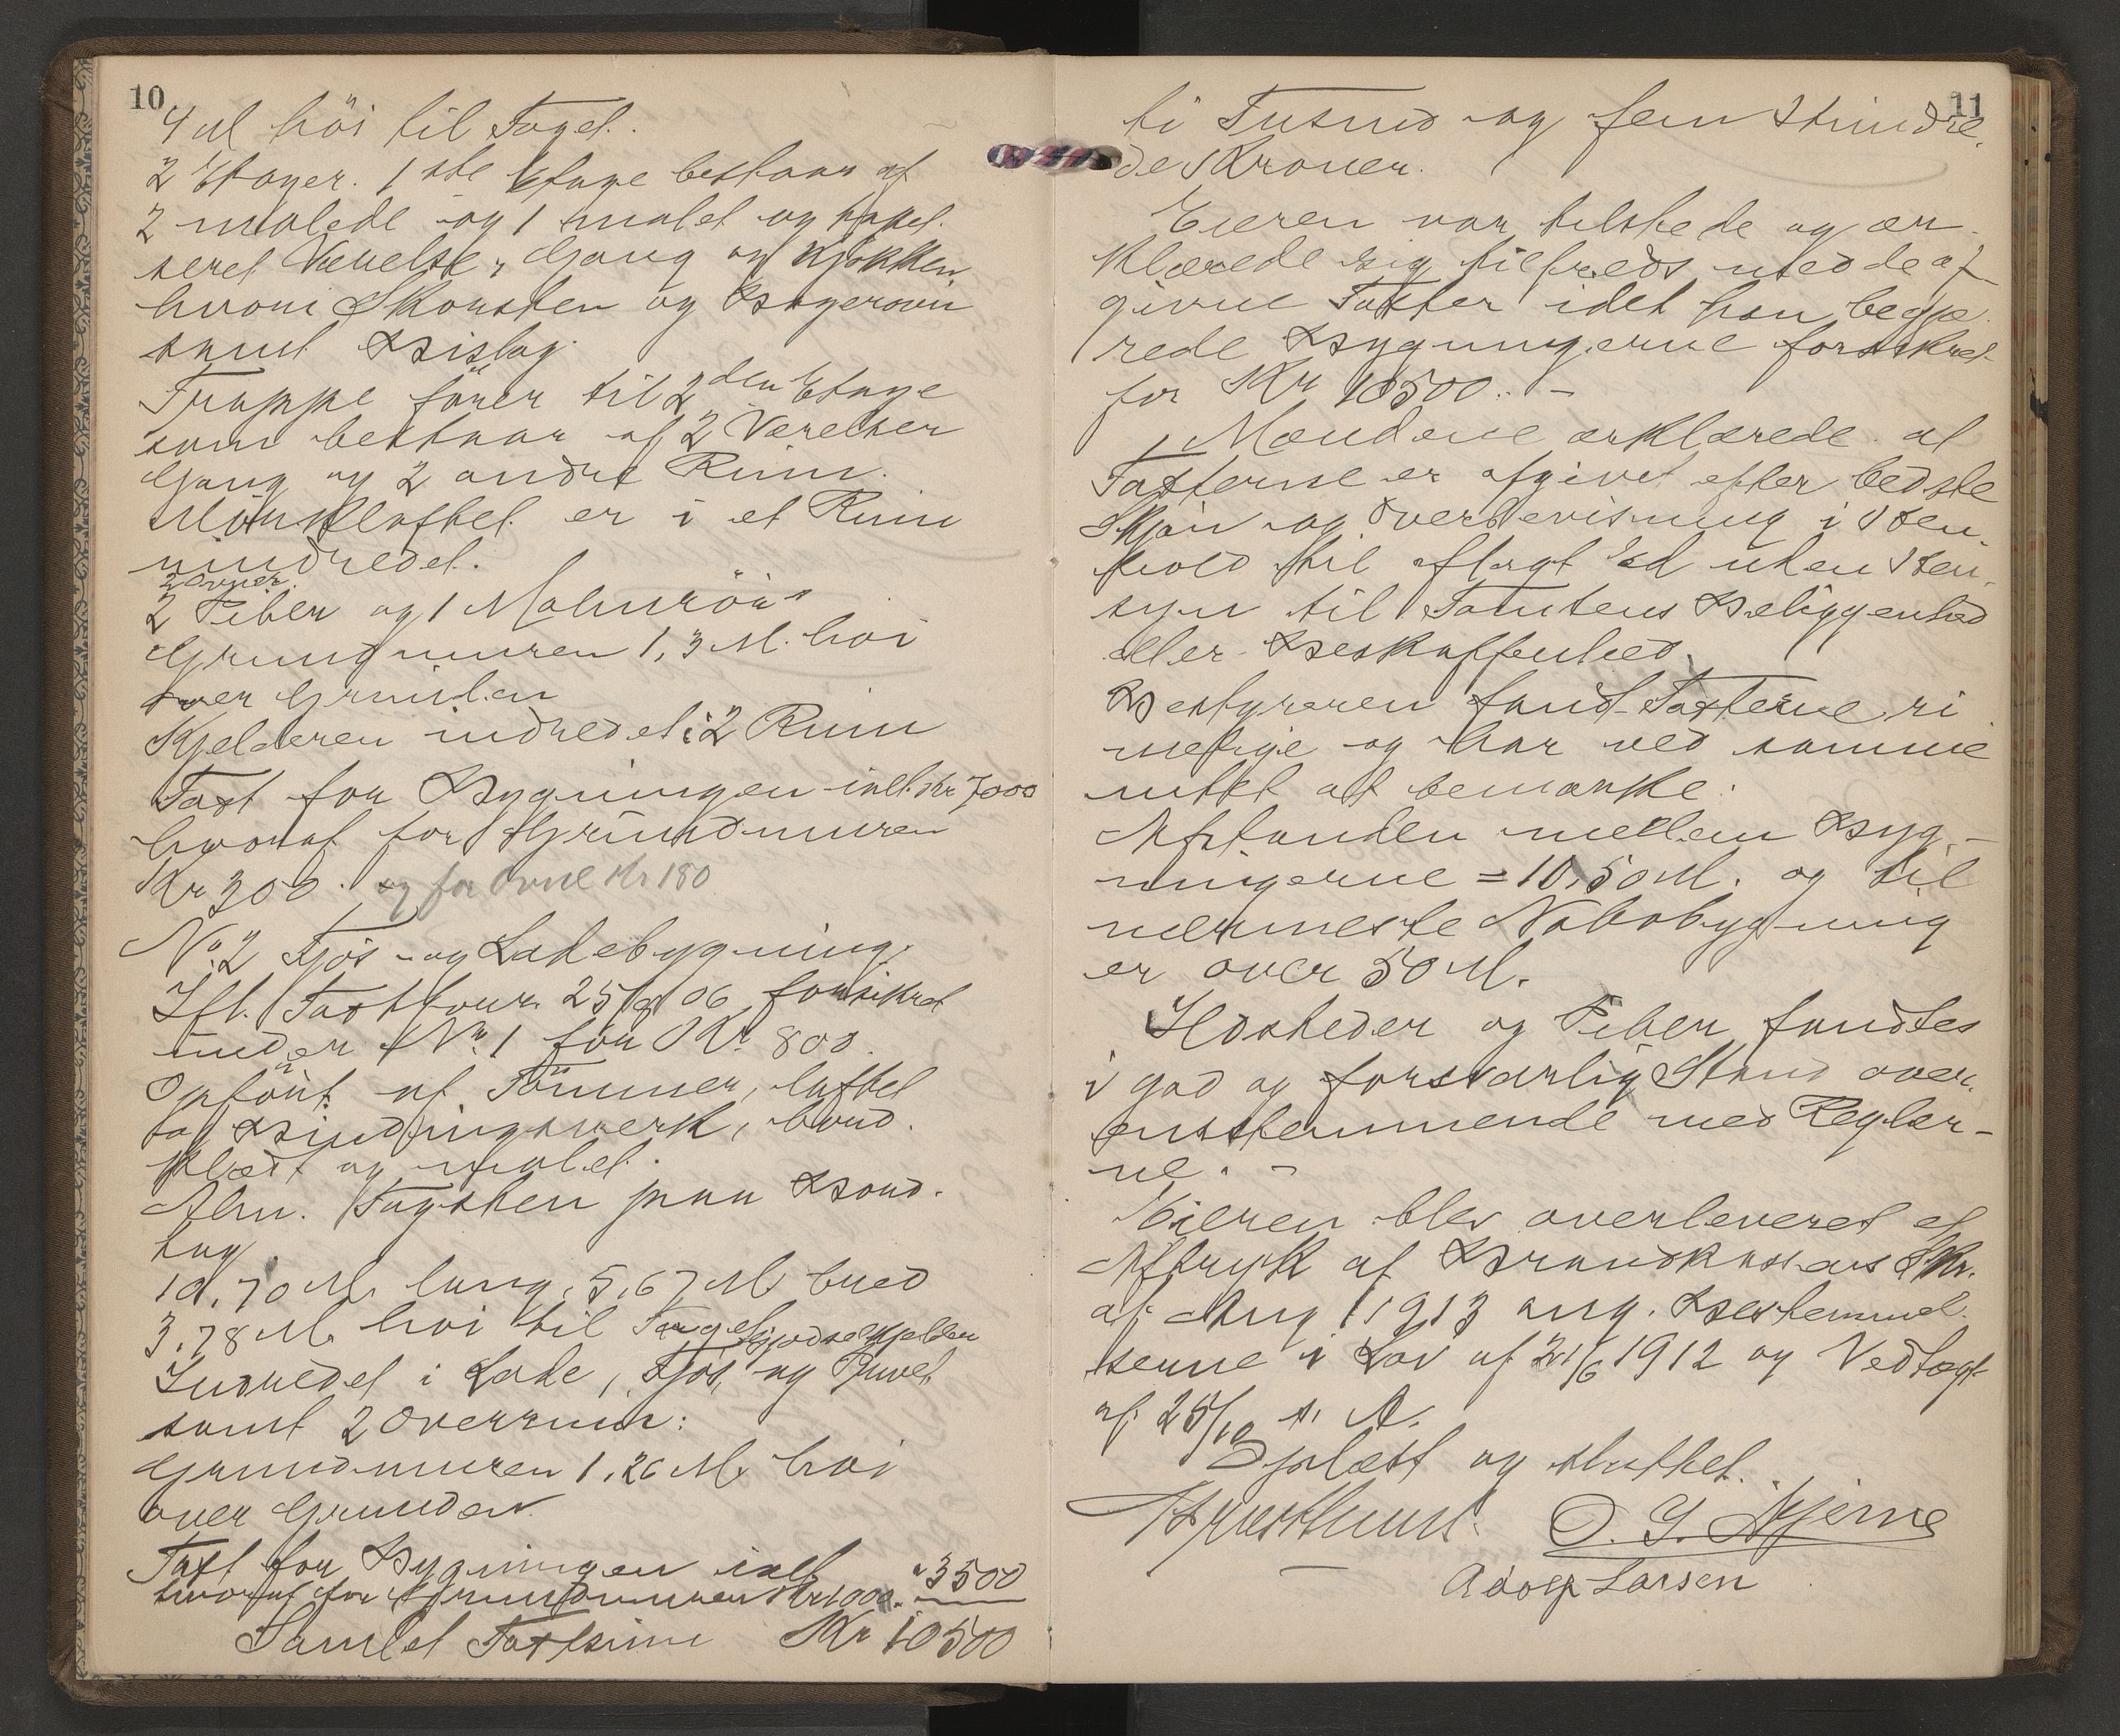 10
4 M höi til Taget.
2 Etager. 1ste Etage bestaar af
2 malede og 1 malet og tapet-
seret Værelse, Gang og Kjøkken
hvori Skorsten og Bagerovn
samt Bislag.
Trappe förer til 2den Etage
som bestaar af 2 Værelser
Gang og 2 andre Rum.
Mörkloftet er i et Rum
uindredet.
2 ovner.
2 Piber og 1 Malmröis
Grundmuren 1,3 M. höi
over Grunden
Kjelderen indredet i 2 Rum
Taxt for Bygningen ialt Kr 7000
hvoraf for Grundmuren
Kr 300. og for Ovne Kr 180
No. 2 Fjös- og Ladebygning.
Ifl. Taxtforr. 25/8 06 forsikret
under No. 1 for Kr. 800.
Opfört af Tömmer, loftet
to Bindingsverk, bord-
klædt og malet.
Alm. Tagsten paa Bord-
tag.
10,70 M. lang, 5,67 M. bred
3,78 M. höi til Taget
Gjødselkjelder
Indredet i Lade, Fjös, og Privet
samt 2 Overrum.
Grundmuren 1,26 M. höi
over Grunden
Taxt for Bygningen ialt " 3500
hvoraf for Grundmuren Kr 1000.
Samlet Taxtsum Kr 10500
11
ti Tusend og fem Hundre-
de Kroner.
Eieren var tilstede og er-
klærede sig tilfreds med de af-
givne Taxter idet han begjæ-
rede Bygningerne forsikret
for Kr 10500. -
Mændene erklærede at
Taxterne er afgivet efter bedste
Skjön og Overbevisning i Hen-
hold til aflagt Ed uden Hen-
syn til Tomtens Beliggenhed
eller Beskaffenhed.
Bestyreren fandt Taxterne ri-
melige og har ved samme
intet at bemærke.
Afstanden mellem Byg-
ningerne = 10,50 M. og til
nærmeste Nabobygning
er over 50 M.
Ildsteder og Piber fandtes
i god og forsvarlig Stand over-
ensstemmende med Regler-
ne. -
Eieren blev overleveret et
Aftryk af Brandkassens Skr.
af Aug 1913 ang. Bestemmel-
serne i Lov af 21/6 1912 og Vedtægt
af 25/10 s. A.
Oplæst og sluttet.
O. J. Hjerne
Adolf Larsen